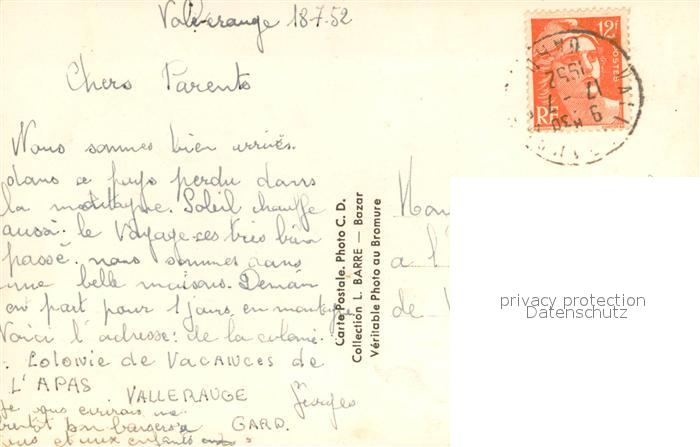 Valleraugue 18-7-52
Chers Parents
Nous sommes bien arrivés.
dans ce pays perdu dans
la montagne. Soleil chauffe
aussi. le Voyage ces très bien
passé. nous sommes dans
une belle maisons. Demain
en part pour 1 jours en montagne
Voici l'adresse: de la colonie
. Colonie de VACANCES de
L'APAS
VALLERAUGE
GARD.
Georges
Je vous
bientôt bon
et aux enfants
Carte Postale. Photo C. D.
Collection L. BARRE — Bazar
Véritable Photo au Bromure
12f
POSTES
RF
9 H30
17 - 7
1952
GARD
a l'
de
privacy protection
Datenschutz